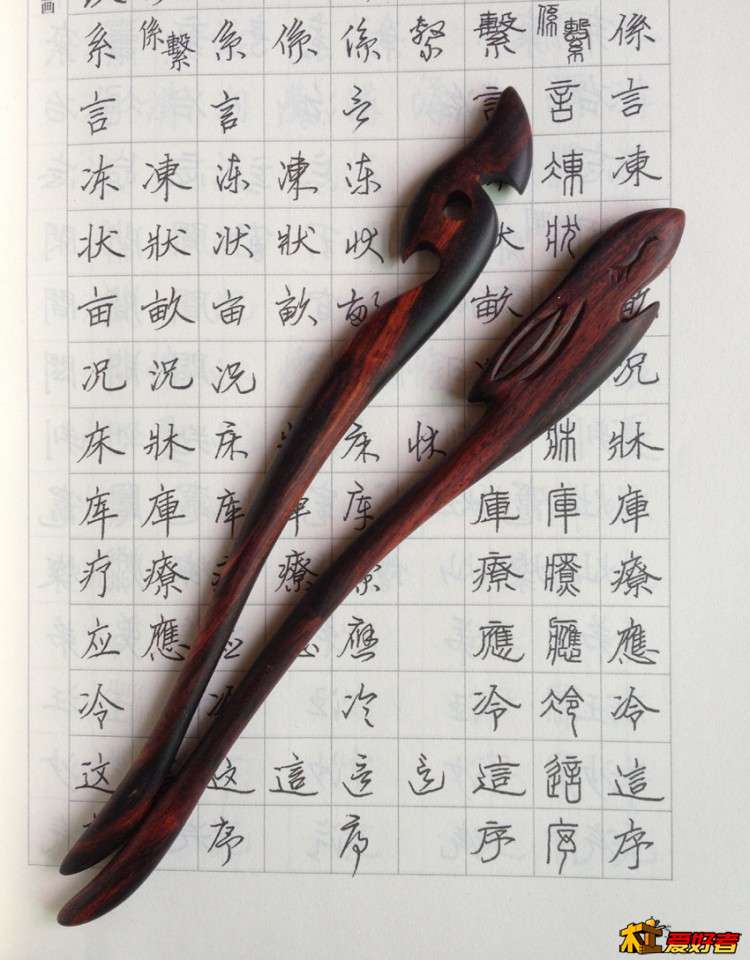 画
系 係繫 系 係 係 繫 繫 係繫 係
言 言 言 言 言
冻 凍 冻 凍 冻 凍 凍
状 狀 状 狀 状 狀
亩 畝 亩 畝 畝 畝
况 況 况 况
床 牀 床 床 牀 牀 牀
库 庫 库 库 庫 庫 庫
疗 療 療 療 療
应 應 应 應 應 應 應
冷 冷 冷 冷 冷
这 这 這 這 這 這 這 這
序 序 序 序 序
木工爱好者